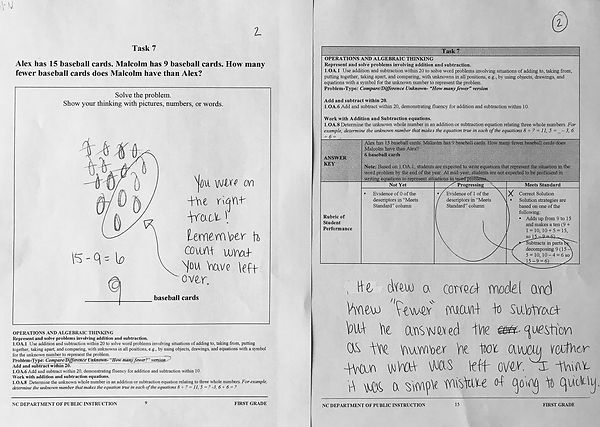 2
Task 7
Alex has 15 baseball cards. Malcolm has 9 baseball cards. How many
fewer baseball cards does Malcolm have than Alex?
Solve the problem.
Show your thinking with pictures, numbers, or words.
You were on
the right
track!
Remember to
count what
you have left
over.
15-9=6
9
baseball cards
OPERATIONS AND ALGEBRAIC THINKING
Represent and solve problems involving addition and subtraction.
1.OA.1 Use addition and subtraction within 20 to solve word problems involving situations of adding to, taking from, putting
together, taking apart, and comparing, with unknowns in all positions, e.g., by using objects, drawings, and equations with a symbol
for the unknown number to represent the problem.
Problem-Type: Compare/Difference Unknown- "How many fewer?" version
Add and subtract within 20.
1.OA.6 Add and subtract within 20, demonstrating fluency for addition and subtraction within 10.
Work with addition and subtraction equations.
1.OA.8 Determine the unknown whole number in an addition or subtraction equation relating to three whole numbers. For example,
determine the unknown number that makes the equation true in each of the equations
NC DEPARTMENT OF PUBLIC INSTRUCTION 9 FIRST GRADE
2
Task 7
OPERATIONS AND ALGEBRAIC THINKING
Represent and solve problems involving addition and subtraction.
1.OA.1 Use addition and subtraction within 20 to solve word problems involving situations of adding to, taking from,
putting together, taking apart, and comparing, with unknowns in all positions, e.g., by using objects, drawings, and
equations with a symbol for the unknown number to represent the problem.
Problem-Type: Compare/Difference Unknown- "How many fewer" version
Add and subtract within 20.
1.OA.6 Add and subtract within 20, demonstrating fluency for addition and subtraction within 10.
Work with Addition and Subtraction equations.
1.OA.8 Determine the unknown whole number in an addition or subtraction equation relating three whole numbers. For
example, determine the unknown number that makes the equation true in each of the equations
ANSWER
KEY
Alex has 15 baseball cards. Malcolm has 9 baseball cards. How many fewer baseball cards does
Malcolm have than Alex?
6 baseball cards
Note: Based on 1.OA.1, students are expected to write equations that represent the situation in the
word problem by the end of the year. At mid-year, students are not expected to be proficient in
writing equations to represent situations in word problems.
Rubric of
Student
Performance
Not Yet
• Evidence of 0 of the
descriptors in "Meets
Standard" column
Progressing
• Evidence of 1 of the
descriptors in "Meets
Standard" column
Meets Standard
X Correct Solution
• Solution strategies are
based on one of the
following:
• Adds up from 9 to 15
and makes a ten (9 +
1 = 10, 10 + 5 = 15,
so 15 - 9 = 6)
• Subtracts in parts by
decomposing 9 (15 -
5 = 10, 10 - 4 = 6 so
15 - 9 = 6)
He drew a correct model and
knew "fewer" meant to subtract
but he answered the question
as the number he took away rather
than what was left over. I think
it was a simple mistake of going to quickly.
NC DEPARTMENT OF PUBLIC INSTRUCTION 15 FIRST GRADE